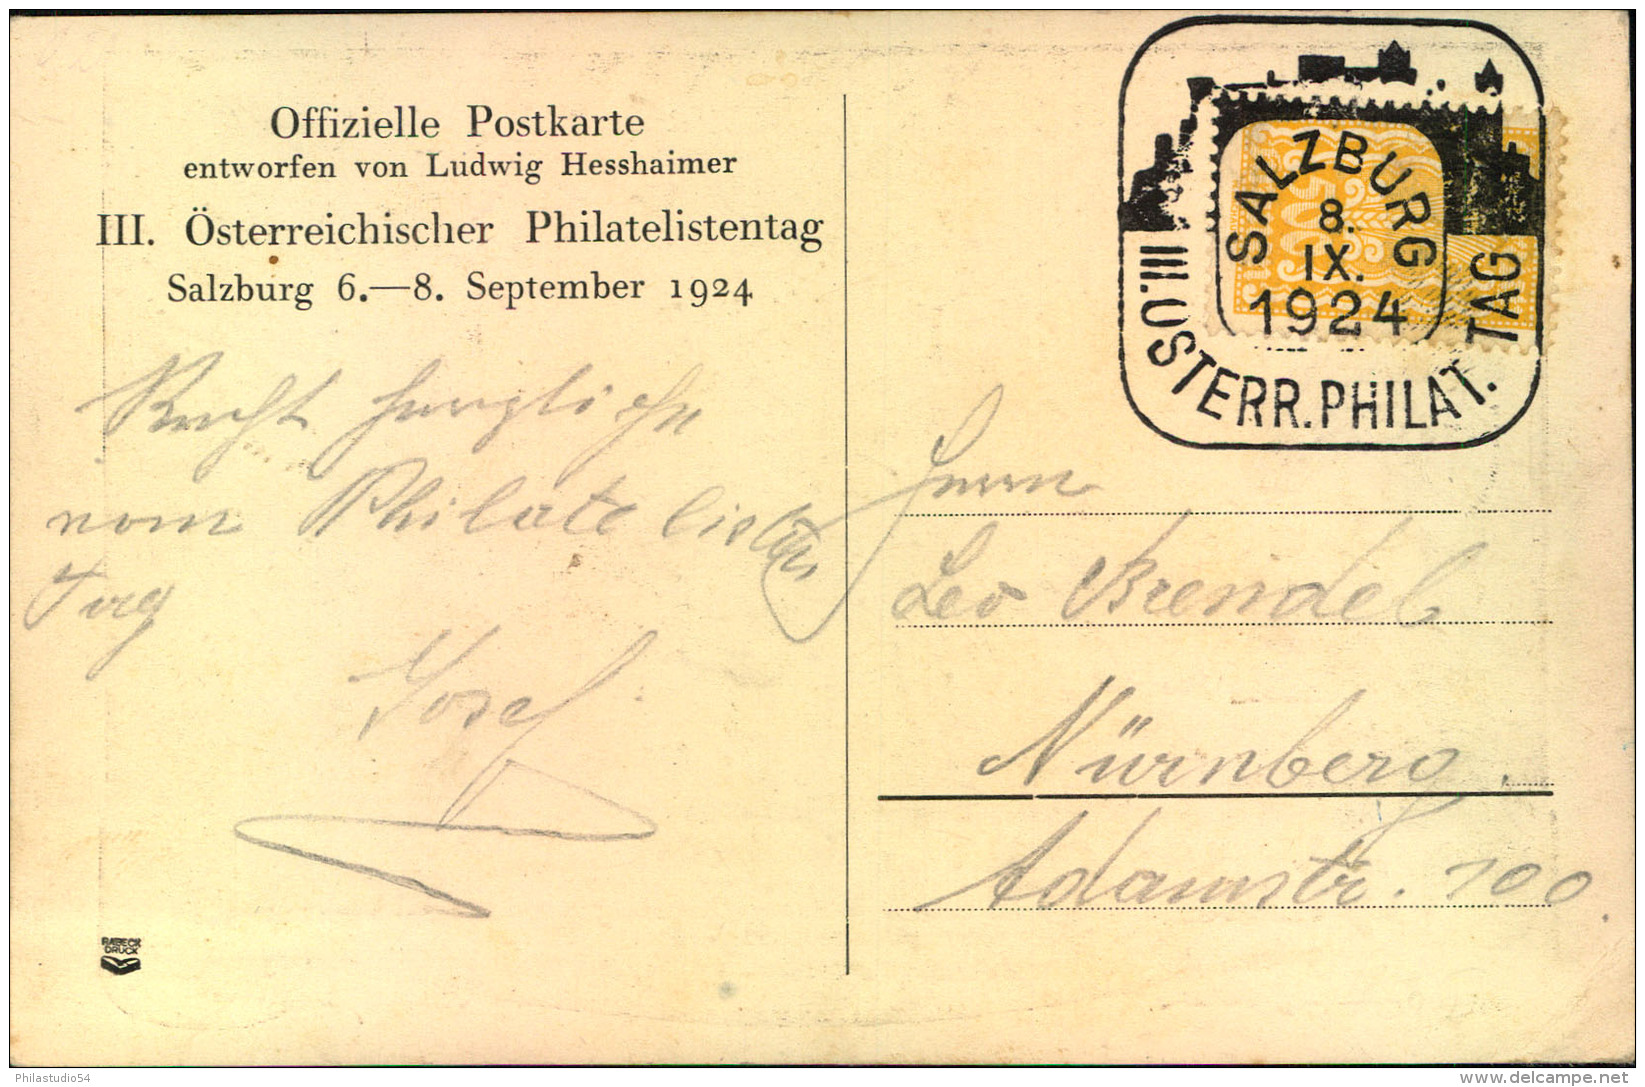 Offizielle Postkarte
entworfen von Ludwig Hesshaimer
III. Österreichischer Philatelistentag
Salzburg 6.—8. September 1924
SALZBURG
8.
IX.
1924
III. ÖSTERR. PHILAT. TAG
500
Recht herzliche
vom Philatelisten
Tag
Josef
Herrn
Leo Brendel
Nürnberg.
Adamstr. 100.
RABECK
DRUCK
Philastudio54
www.delcampe.net